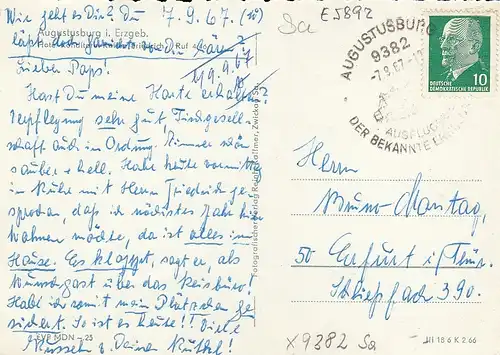 Wie geht es Dir? Du 7.9.67. (10)
läßt doch
Augustusburg i. Erzgeb.
Ruf 4
19.9.67
Lieber Paps!
Hast Du meine Karte erhalten?
Verpflegung sehr gut, Tischgesell-
schaft auch in Ordnung. Zimmer schön
sauber + hell. Habe heute vormittag
in Ruhe mit Herrn Friedrich ge-
sprochen, daß ich nächstes Jahr hier
wohnen möchte, da ist alles im
Hause. Es klappt, sagt er, als
Wunschgast über das Reisebüro!
Habe ich somit mein Plätzchen ge-
sichert. So ist es heute!! Viele
Küssen v. Deiner
EVP MDN -,25
Fotografischer Verlag Zwickau Sa.
Sa
E5892
AUGUSTUSBURG
9382
-7.9.67.-
AUSFLUGS
DER BEKANNTE
10
DEUTSCHE
DEMOKRATISCHE REPUBLIK
Herrn
Bruno Montag,
50 Erfurt i/ Thür.
Schließfach 390.
III 18 6 K 2 66
X 9382 Sa